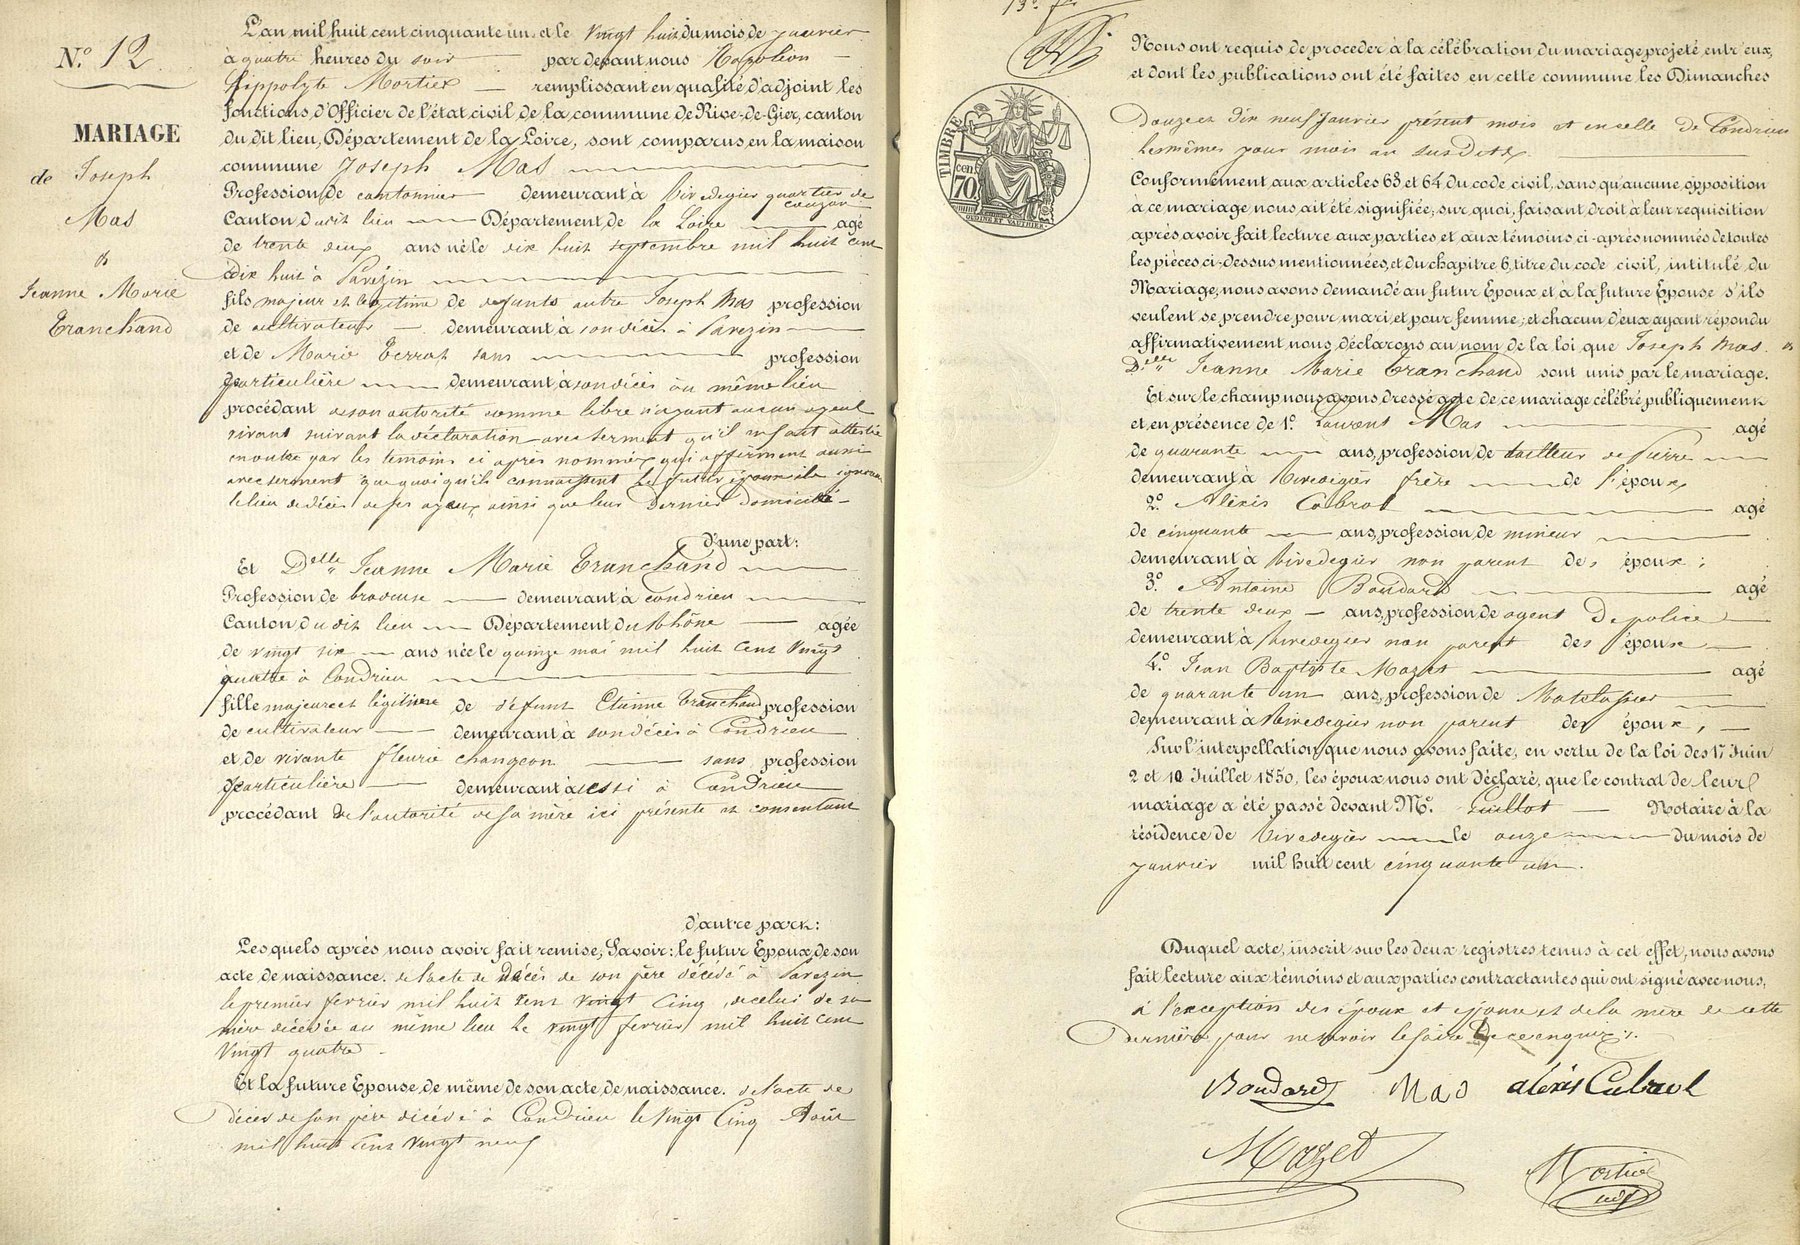 N.° 12
MARIAGE
de Joseph
Mas
&
Jeanne Marie
Tranchand
L'an mil huit cent cinquante un et le vingt huit du mois de janvier
à quatre heures du soir par devant nous Napoléon
hippolyte Mortier remplissant en qualité d'adjoint les
fonctions d'Officier de l'état civil de la commune de Rive-de-Gier, canton
du dit lieu, Département de la Loire, sont comparus en la maison
commune Joseph Mas
Profession de cantonnier demeurant à Rivedegier quartier de
couzon
Canton dudit lieu Département de la Loire agé
de trente deux ans né le dix huit septembre mil huit cent
dix huit à Pavezin
fils majeur et légitime de défunts autre Joseph Mas profession
de cultivateur demeurant à son décès à Pavezin
et de Marie Terrat sans profession
particulière demeurant à son décès au même lieu
procédant de son autorité comme libre n'ayant aucun ayeul
vivant suivant la déclaration avec serment qu'il en fait attestée
en outre par les témoins ci après nommés qui affirment aussi
avec serment que quoi qu'ils connaissent le futur époux ils ignorent
le lieu de décès de ses ayeux ainsi que leur dernier domicile
d'une part:
Et Delle Jeanne Marie Tranchand
Profession de brodeuse demeurant à Condrieu
Canton dudit lieu Département du Rhône agée
de vingt six ans née le quinze mai mil huit cent vingt
quatre à Condrieu
fille majeure et légitime de défunt Etienne Tranchand profession
de cultivateur demeurant à son décès à Condrieu
et de vivante fleurie changeon sans profession
particulière demeurant aussi à Condrieu
procédant de l'autorité de sa mère ici présente et consentant
d'autre part:
Lesquels après nous avoir fait remise, Savoir: le futur Epoux, de son
acte de naissance. de l'acte de décès de son père décédé à Pavezin
le premier fevrier mil huit cent vingt cinq, de celui de sa
mère décédée au même lieu le vingt fevrier mil huit cent
vingt quatre.
Et la future Epouse, de même de son acte de naissance. de l'acte de
décès de son père décédé à Condrieu le vingt cinq Août
mil huit cent vingt neuf
Nous ont requis de proceder à la célébration du mariage projeté entr'eux,
et dont les publications ont été faites en cette commune les Dimanches
douze et dix neuf janvier présent mois et en celle de Condrieu
les mêmes jour mois an susdits
Conformément aux articles 63 et 64 du code civil, sans qu'aucune opposition
à ce mariage nous ait été signifiée; sur quoi, faisant droit à leur requisition
après avoir fait lecture aux parties et aux témoins ci-après nommés de toutes
les pièces ci-dessus mentionnées, et du chapitre 6, titre du code civil, intitulé du
Mariage, nous avons demandé au futur Epoux et à la future Epouse s'ils
veulent se prendre pour mari et pour femme; et chacun d'eux ayant répondu
affirmativement nous déclarons au nom de la loi que Joseph Mas. &
Delle Jeanne Marie Tranchand sont unis par le mariage.
Et sur le champ nous avons dressé acte de ce mariage célébré publiquement
et en présence de 1.° Laurent Mas agé
de quarante ans, profession de tailleur de Pierre
demeurant à Rivedegier frère de l'époux
2.° Alexis Cabrol agé
de cinquante ans, profession de mineur
demeurant à Rivedegier non parent des époux;
3.° Antoine Boudard agé
de trente deux ans, profession de agent De police
demeurant à Rivedegier non parent des époux
4.° Jean Baptiste Mazet agé
de quarante un ans, profession de Matelassier
demeurant à Rivedegier non parent des époux,
Sur l'interpellation que nous avons faite, en vertu de la loi des 17 Juin
2 et 10 Juillet 1850, les époux nous ont déclaré, que le contrat de leur
mariage a été passé devant M.e Guillot Notaire à la
résidence de Rivedegier le onze du mois de
janvier mil huit cent cinquante un.
Duquel acte, inscrit sur les deux registres tenus à cet effet, nous avons
fait lecture aux témoins et aux parties contractantes qui ont signé avec nous,
à l'exception des époux et épouse et de la mère de cette
dernière pour ne savoir le faire de ce enquis.
Boudard Mas aléxis Cabrol
Mazet Mortier
adj
TIMBRE
70 cen.
OUDINÉ ET VAUTHIER